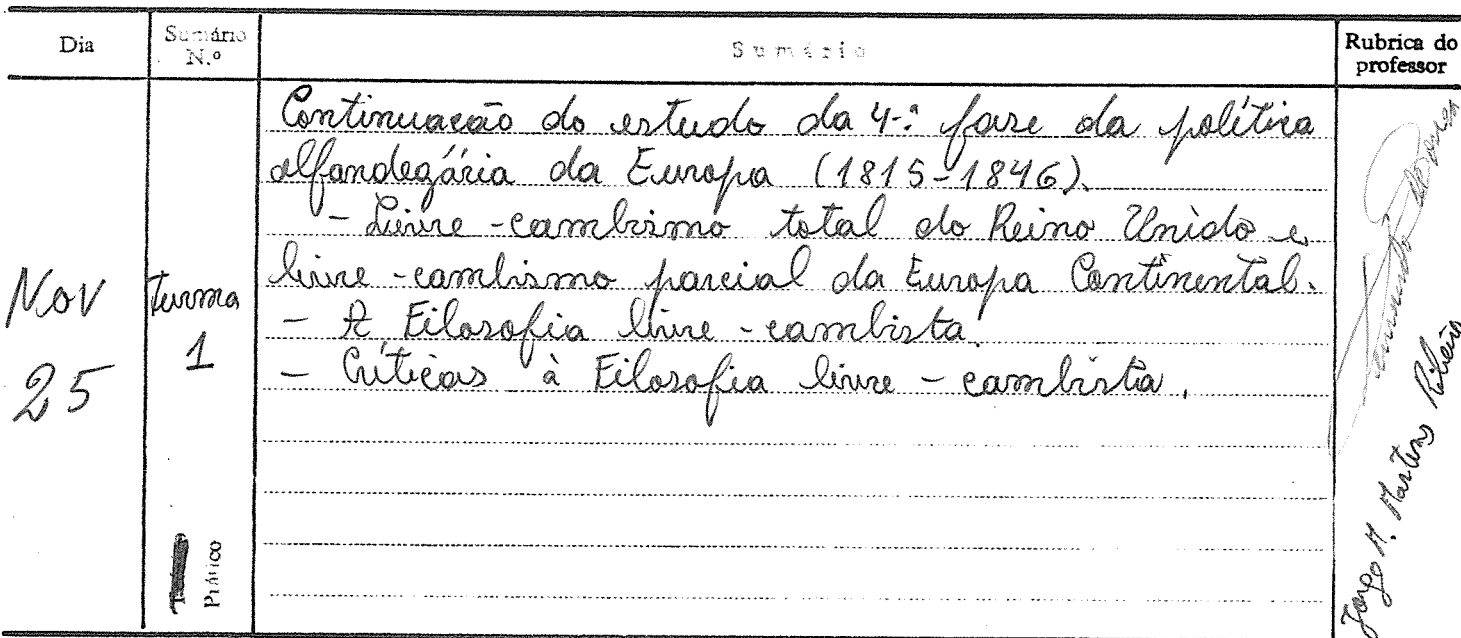 Dia
Sumário
N.º
Sumário
Rubrica do
professor
Nov
25
Turma
1
Prático
Continuação do estudo da 4.ª fase da política
alfandegária da Europa (1815-1846).
- Livre-cambismo total do Reino Unido e
livre-cambismo parcial da Europa Continental.
- A Filosofia livre-cambista.
- Críticas à Filosofia livre-cambista.
Fernando
Jorge M. Martins Ribeiro